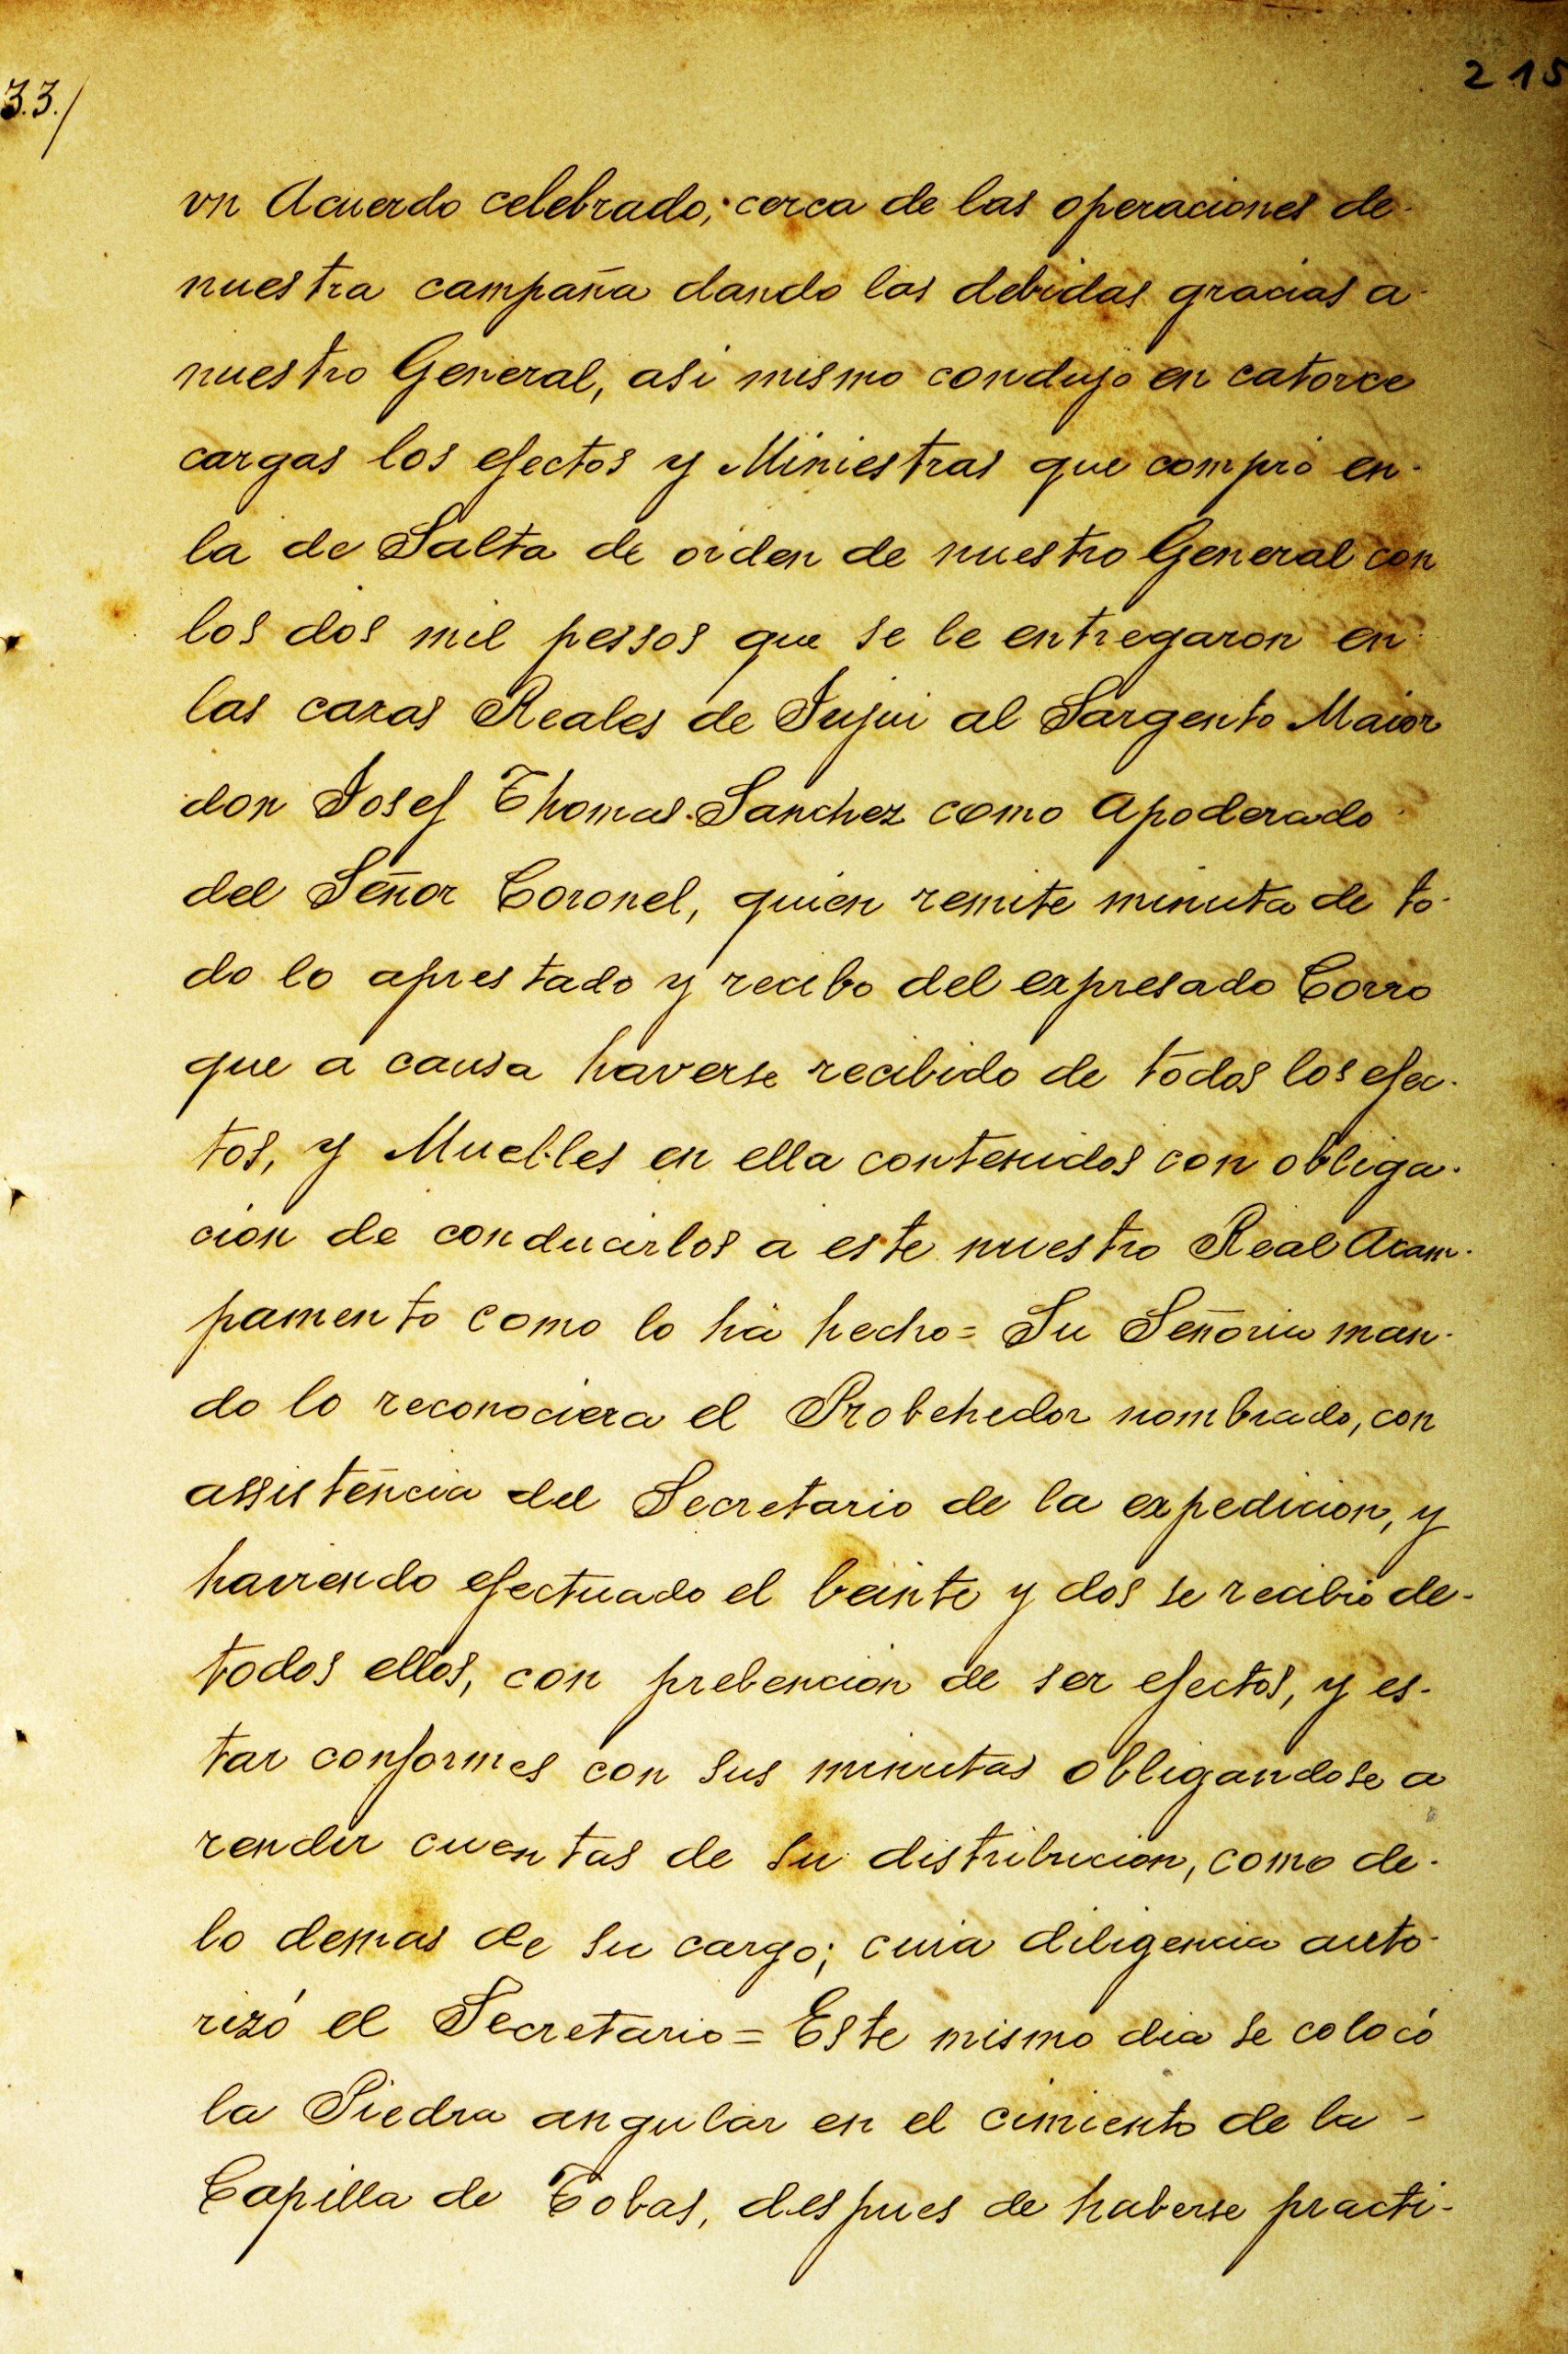 33./
215
vn Acuerdo celebrado, cerca de las operaciones de-
nuestra campaña dando las debidas gracias a-
nuestro General, asi mismo condujo en catorce
cargas los efectos y Miniestras que compró en-
la de Salta de orden de nuestro General con
los dos mil pessos que se le entregaron en
las caxas Reales de Jujui al Sargento Maior
don Josef Thomas Sanchez como Apoderado
del Señor Coronel, quien remite minuta de to-
do lo aprestado y recibo del expresado Corro
que a causa haverse recibido de todos los efec-
tos, y Muebles en ella contenidos con obliga-
cion de conducirlos a este nuestro Real Acam-
pamento como lo há hecho= Su Señoria man-
do lo reconociera el Probehedor nombrado, con
assisteñcia del Secretario de la expedicion, y
haviendo efectuado el beinte y dos se recibió de-
todos ellos, con prebencion de ser efectos, y es-
tar conformes con sus minutas obligandose a
rendir cuentas de su distribucion, como de-
lo demas de su cargo; cuia diligencia auto-
rizó el Secretario= Este mismo dia se colocó
la Piedra angular en el cimiento de la -
Capilla de Tobas, despues de haberse practi-